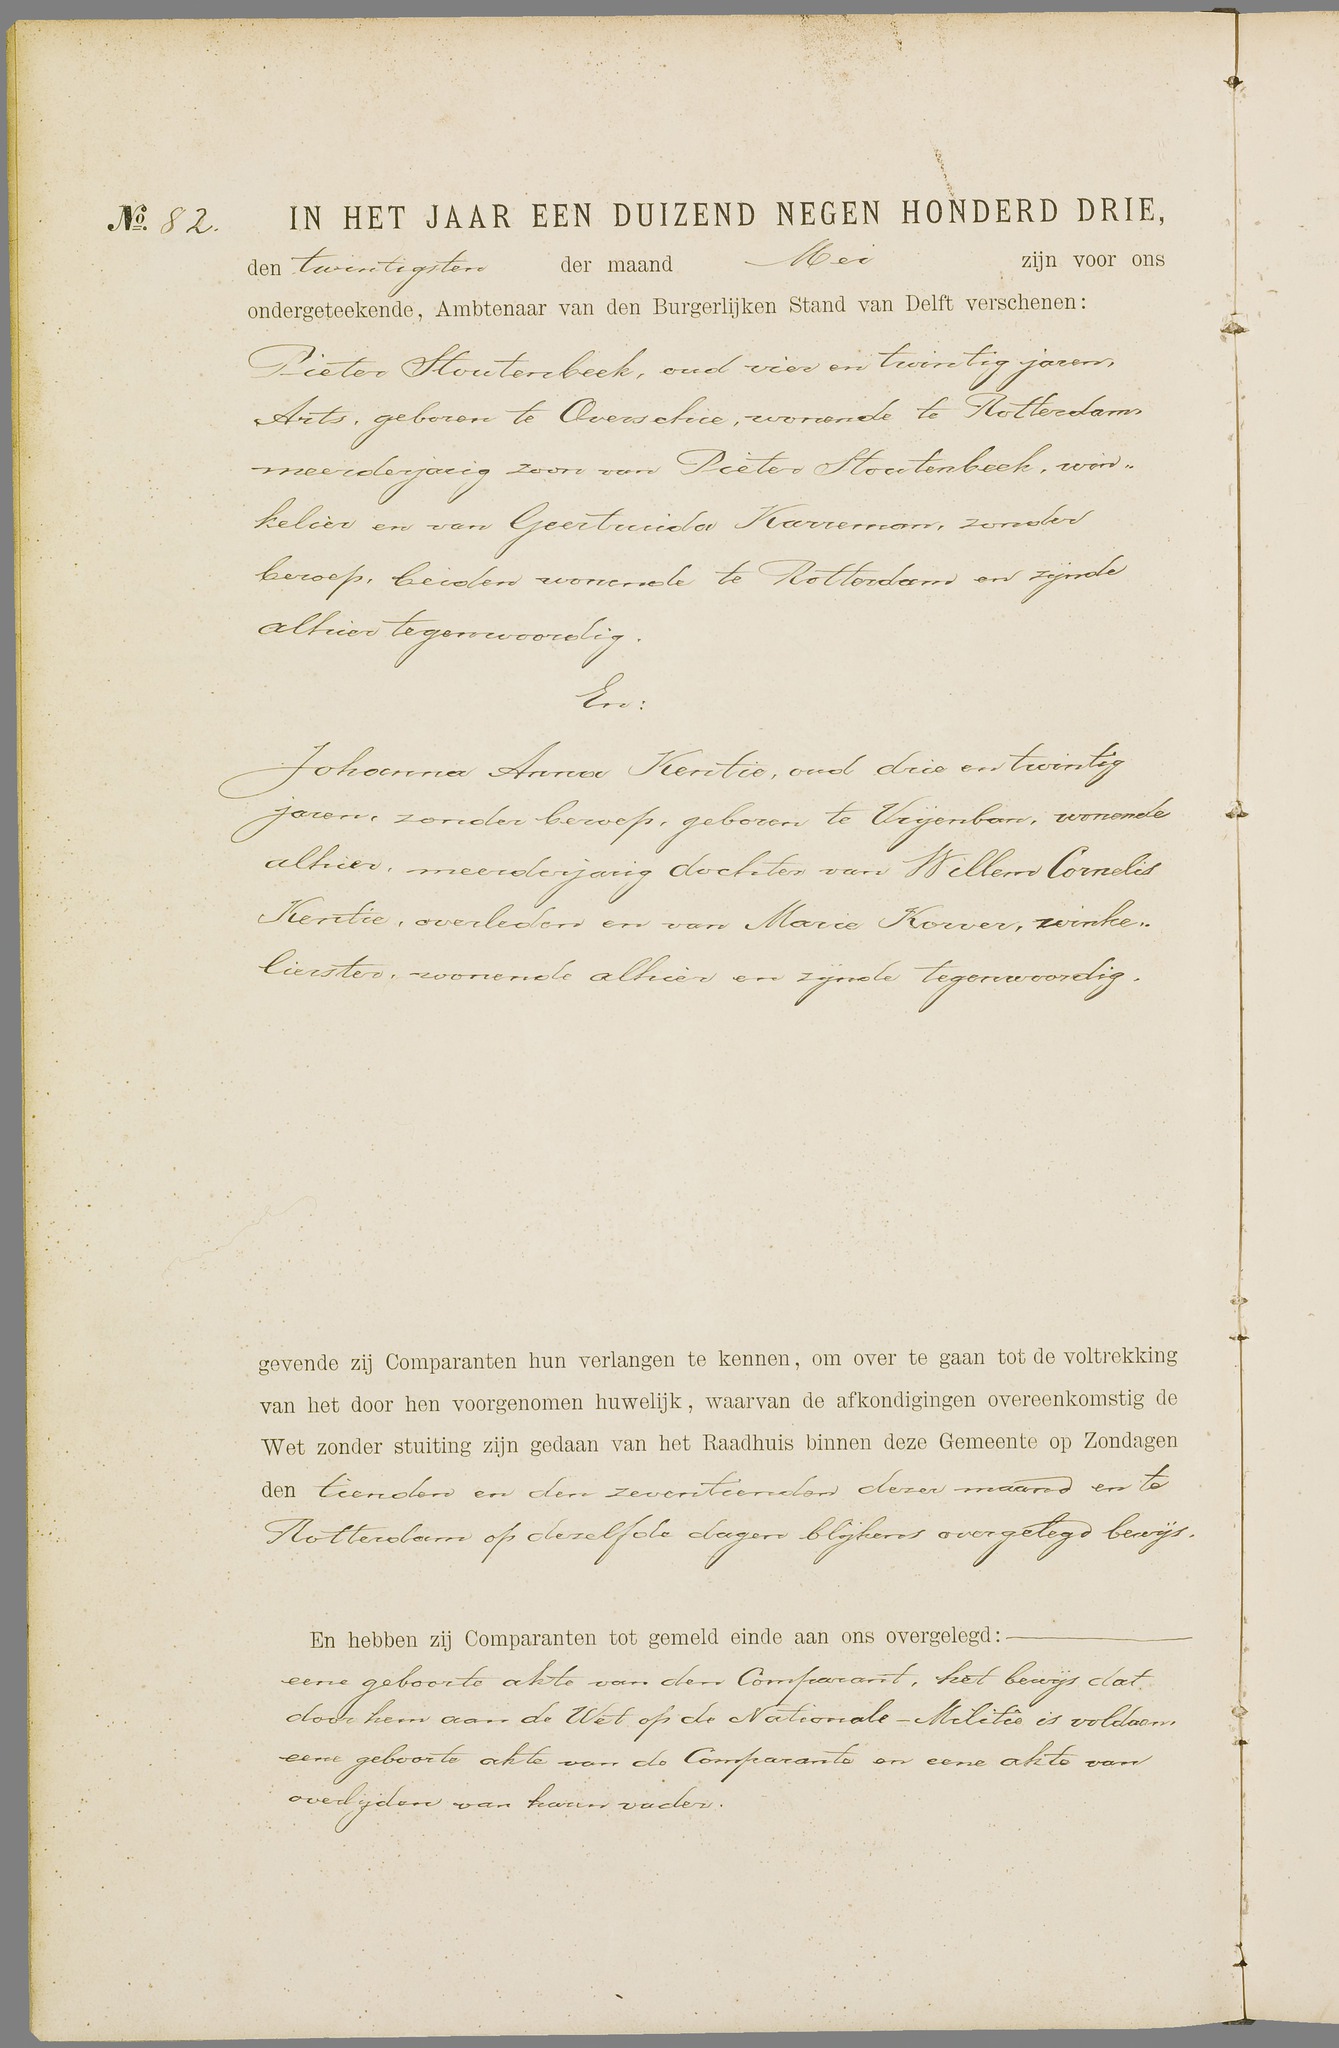 No. 82. IN HET JAAR EEN DUIZEND NEGEN HONDERD DRIE,
den twintigsten der maand Mei zijn voor ons
ondergeteekende, Ambtenaar van den Burgerlijken Stand van Delft verschenen:
Pieter Stoutenbeek, oud vier en twintig jaren,
Arts, geboren te Overschie, wonende te Rotterdam
meerderjarig zoon van Pieter Stoutenbeek, win„
kelier en van Geertruida Karreman, zonder
beroep, beiden wonende te Rotterdam en zijnde
alhier tegenwoordig.
En:
Johanna Anna Kentie, oud drie en twintig
jaren, zonder beroep, geboren te Vrijenban, wonende
alhier, meerderjarig dochter van Willem Cornelis
Kentie, overleden en van Marie Korver, winke„
lierster, wonende alhier en zijnde tegenwoordig.
gevende zij Comparanten hun verlangen te kennen, om over te gaan tot de voltrekking
van het door hen voorgenomen huwelijk, waarvan de afkondigingen overeenkomstig de
Wet zonder stuiting zijn gedaan van het Raadhuis binnen deze Gemeente op Zondagen
den tienden en den zeventienden dezer maand en te
Rotterdam op dezelfde dagen blijkens overgelegd bewijs.
En hebben zij Comparanten tot gemeld einde aan ons overgelegd:
eene geboorte akte van den Comparant, het bewijs dat
door hem aan de Wet op de Nationale-Militie is voldaan,
eene geboorte akte van de Comparante en eene akte van
overlijden van haren vader.